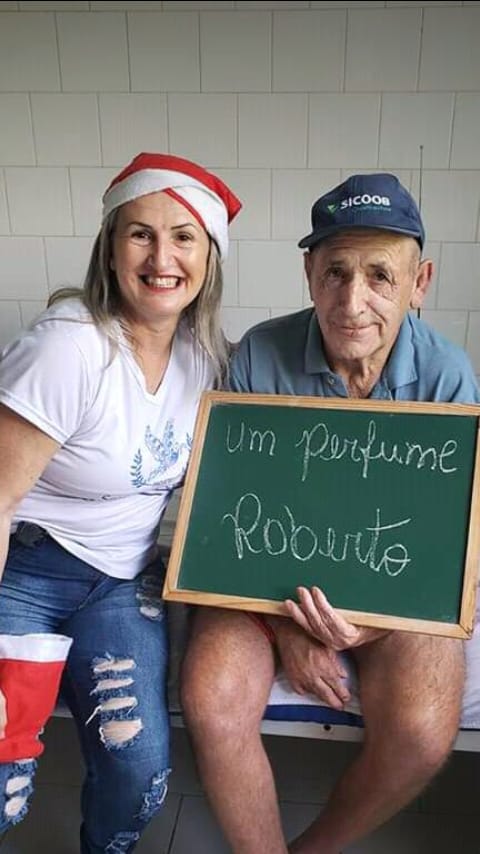 SICOOB
um perfume
Roberto